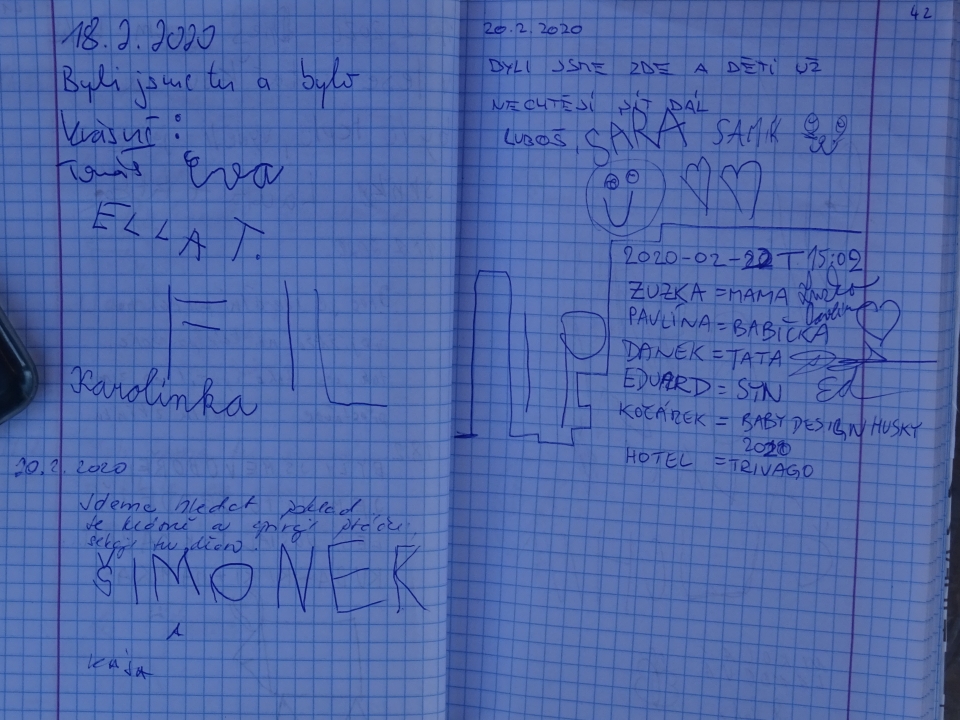 18.2.2020
Byli jsme tu a bylo
krásně:
Tomáš Eva
ELLA T.
FIL
Karolínka
20.2.2020
Jdeme hledat poklad
ŠIMONEK
A
Kája
42
20.2.2020
BYLI JSME ZDE A DĚTI UŽ
NECHTĚSÍ JÍT DÁL
LUBOŠ, SÁRA SAMÍK
2020-02-22T15:02
ZUZKA = MAMA
PAVLÍNA = BABIČKA
DANEK = TATA
EDUARD = SYN Ed
KOČÁREK = BABY DESIGN HUSKY
2020
HOTEL = TRIVAGO